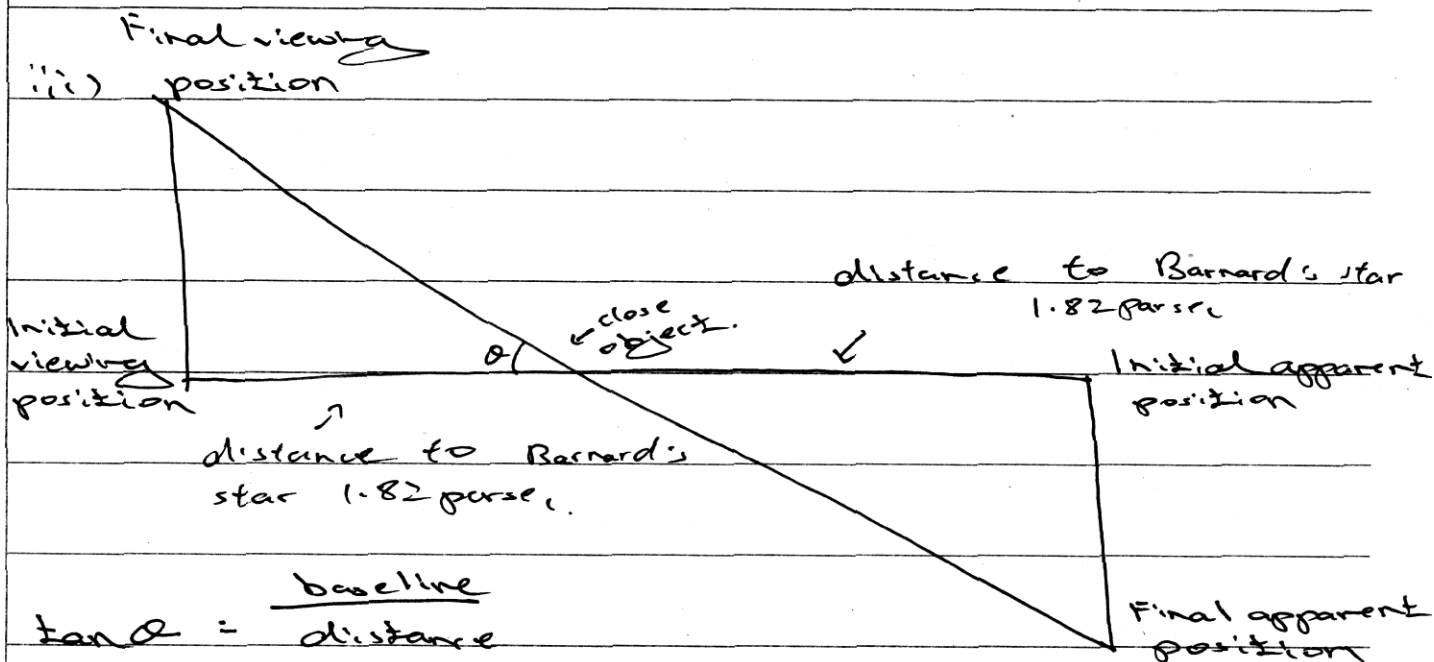 Final viewing
iii) position
distance to Barnard's star
1.82 parsec
close
object.
θ
Initial
viewing
position
Initial apparent
position
distance to Barnard's
star 1.82 parsec.
baseline
tan θ = distance
Final apparent
position